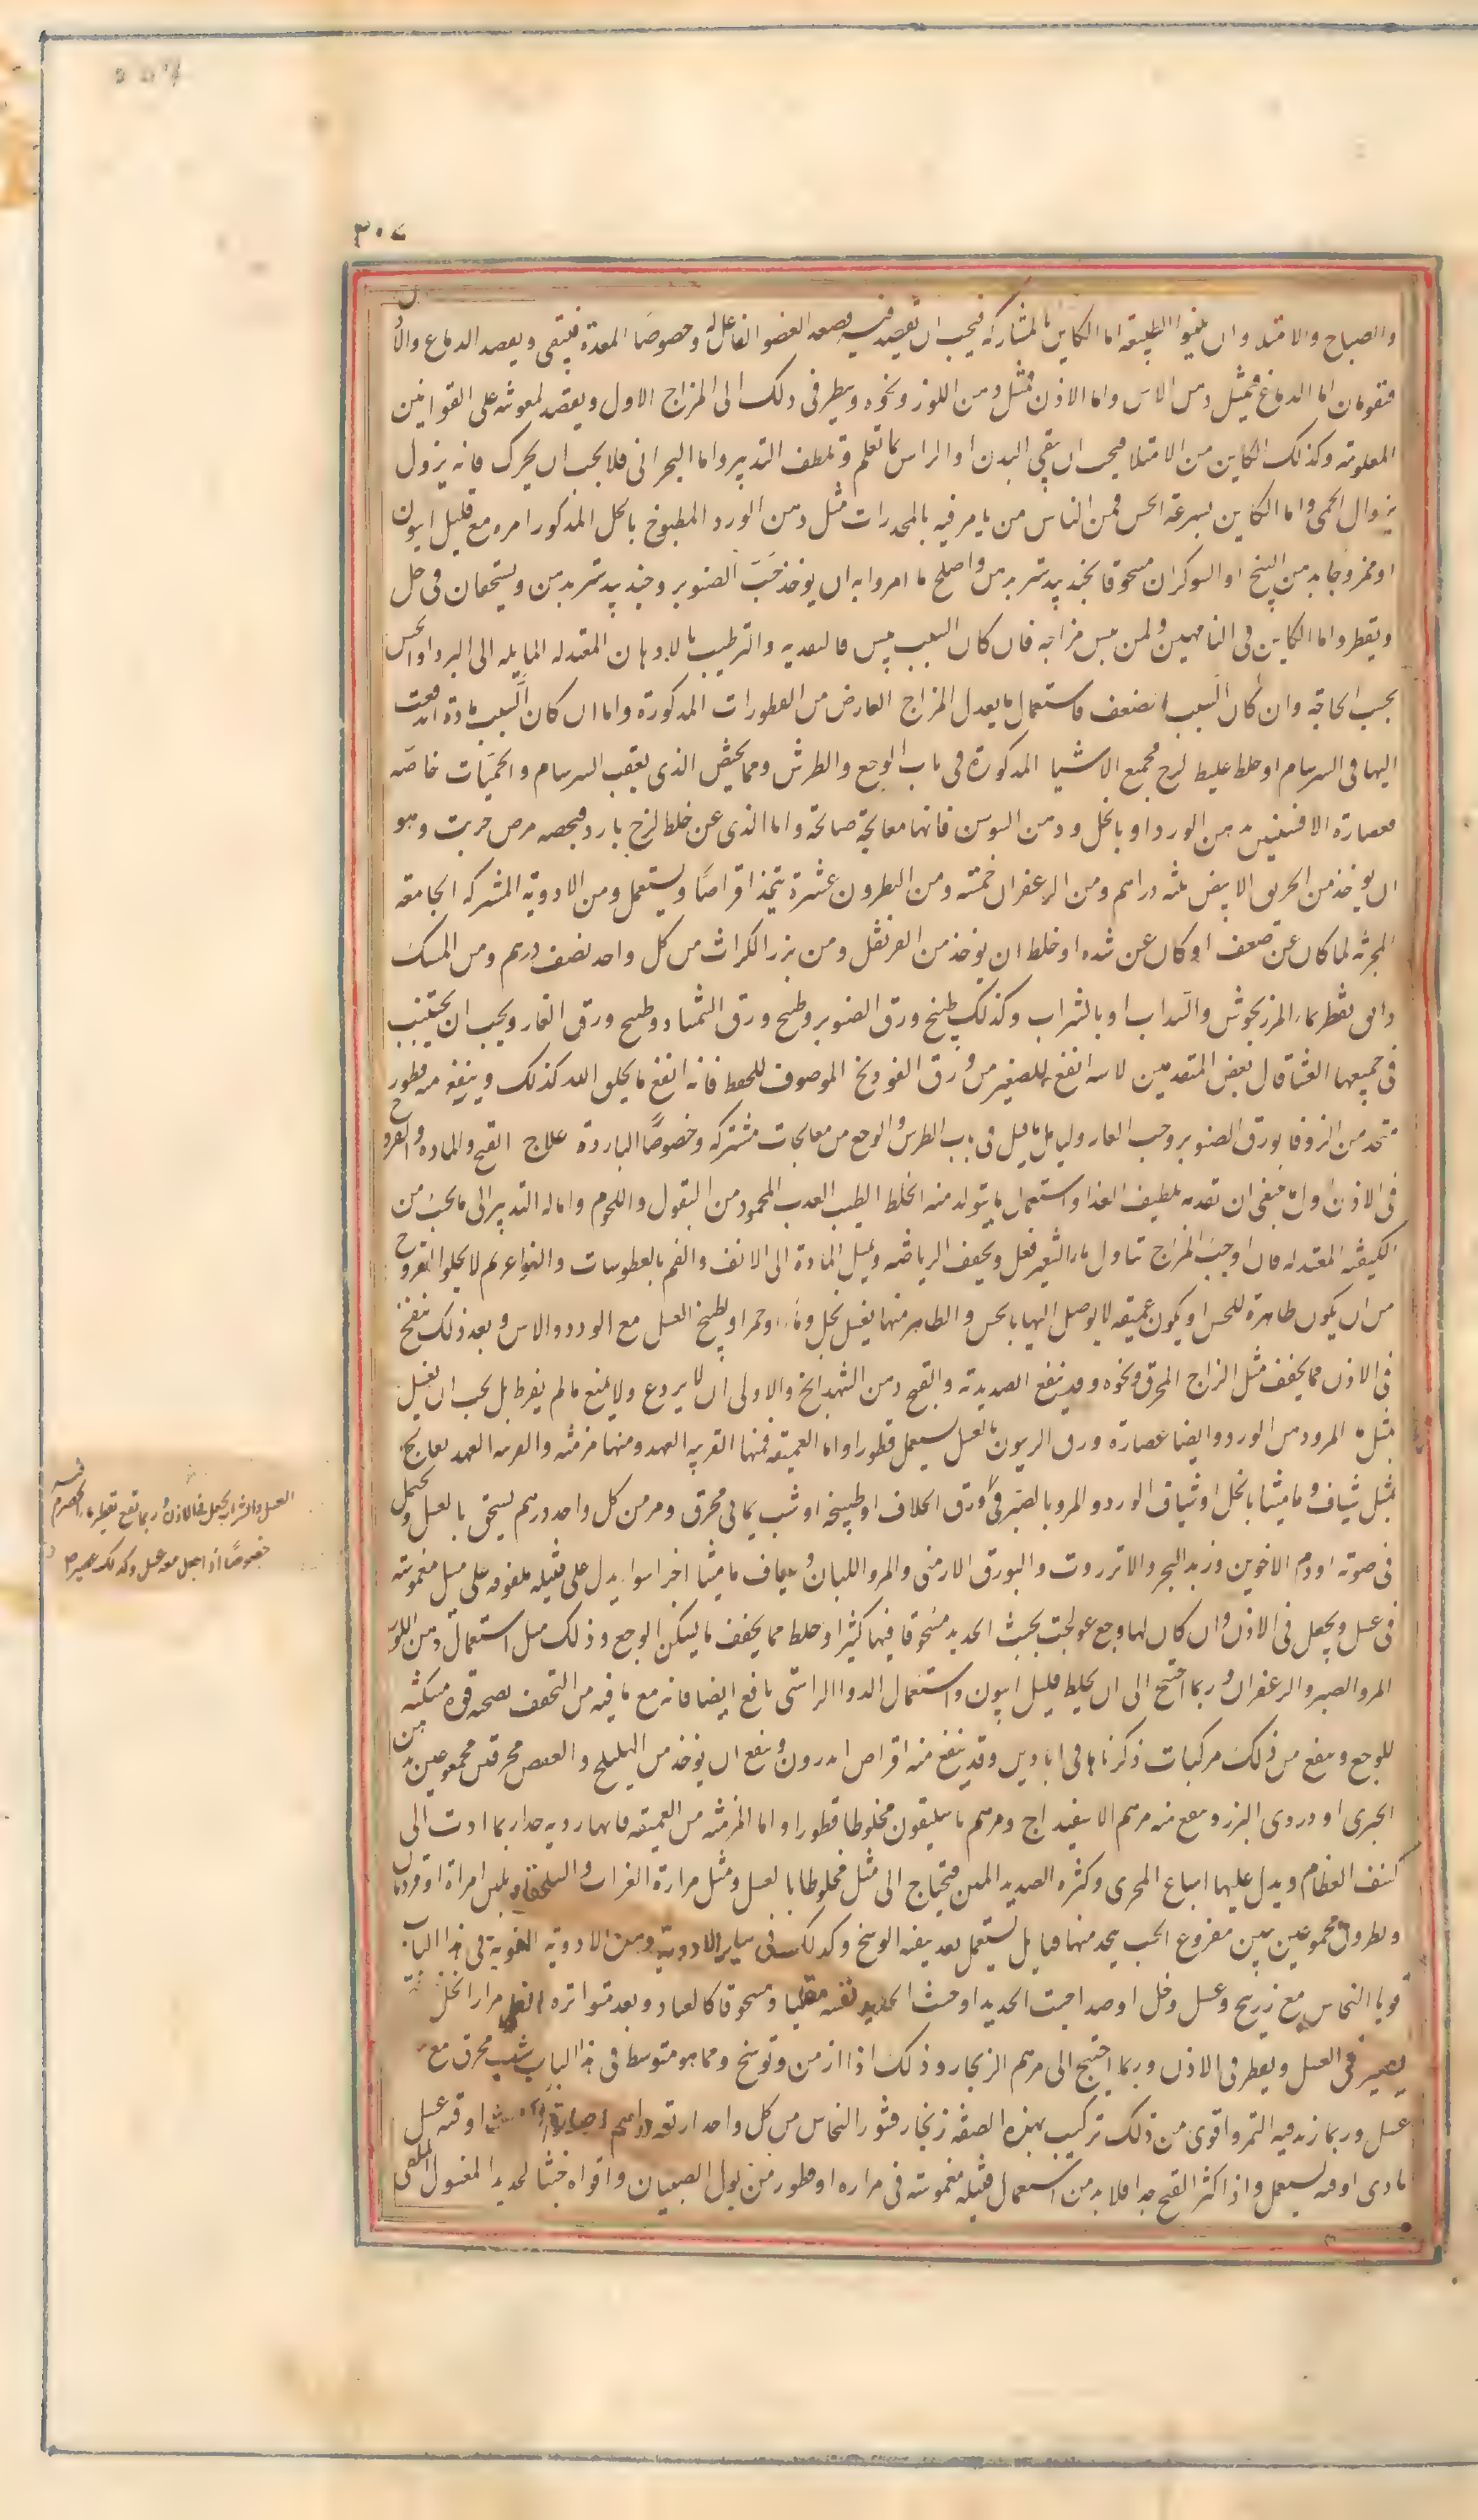 ٣٠٧
والصياح والامتلا وان يلينوا الطبيعه اما الكاين بالمشاركة فيجب ان يقصد فيه قصد العضو الفاعل له وخصوصا المعدة فينقى ويقصد الدماغ والاذن
فتقويان اما الدماغ فبمثل دهن الاس واما الاذن فبمثل دهن اللوز ونحوه وينظر فى ذلك الى المزاج الاول ويقصد لمعونته على القوانين
المعلومة وكذلك الكاين من الامتلا فيجب ان ينقى البدن او الراس بما تعلم وتلطف التدبير واما البحرانى فلا يجب ان يحرك فانه يزول
بزوال الحمى واما الكاين بسرعة الحس فمن الناس من يامر فيه بالمخدرات مثل دهن الورد المطبوخ بالخل المذكور امره مع قليل افيون
او ممزوجا بدهن البنج او الشوكران مسحوقا بجندبيدستر بدهن واصلح ما امروا به ان يوخذ حب الصنوبر وجندبيدستر بدهن ويسحقان فى خل
ويقطر واما الكاين فى الناقهين ولمن يبس مزاجه فان كان السبب يبس فالتغديه والترطيب بالادهان المعتدله المايله الى البرد او الحس
بحسب الحاجة وان كان السبب الضعف فاستعمل ما يعدل المزاج العارض من القطورات المذكورة واما ان كان السبب مادة اندفعت
اليها فى السرسام او خلط غليظ لزج فجميع الاشيا المذكورة فى باب الوجع والطرش ومما يختص الذى يعقب السرسام والحميات خاصه
فعصارة الافسنتين بدهن الورد او بالخل ودهن السوسن فانها معالجة صالحة واما الذى عن خلط لزج بارد فيخصه قرص جربت وهو
ان يوخذ من الخربق الابيض ثلثه دراهم ومن الزعفران خمسه ومن النطرون عشرة يتخذ اقراصا ويستعمل ومن الادوية المشتركه الجامعة
المجربه لما كان عن ضعف او كان عن سده او خلط ان يوخذ من القرنفل ومن بزر الكراث من كل واحد نصف درهم ومن المسك
دانق يقطر بماء المرزنجوش والسداب او بالشراب وكذلك طبيخ ورق الصنوبر وطبيخ ورق الشمشاد وطبيخ ورق الغار ويجب ان يجتنب
فى جميعها العشا قال بعض المتقدمين لاشى انفع للصفير من ورق الفودنج الموصوف للحفظ فانه انفع ما يكون كذلك وينفع منه قطور
متخذ من الزوفا بورق الصنوبر وحب الغار وليتامل ما قيل فى باب الطرش والوجع من معالجات مشتركه وخصوصا الباردة علاج القيح والماده والقروح
فى الاذن اولا ينبغى ان تقدم تلطيف الغذا واستعمال ما يتولد منه الخلط الطيب العذب المحمود من البقول واللحوم وامالة التدبير الى ما يجب من
الكيفيه المعتدله فان اوجب المزاج تناول ماء الشعير فعل ويخفف الرياضه ويميل المادة الى الانف والفم بالعطوسات والغراغر ثم لا يخلو القروح
من ان يكون ظاهرة للحس او يكون عميقه لا يوصل اليها بالحس والظاهر منها يغسل بخل وماء او خمر او بطبيخ العسل مع الورد والاس وبعد ذلك ينفخ
فى الاذن مما يجفف مثل الزاج المحرق ونحوه وقد ينفع الصديدية والقيح دهن الشهدانج والاولى ان لا يردع ولا يمنع مالم يفرط بل يجب ان يغسل
بمثل المر ودهن الورد وايضا عصارة ورق الزيتون بالعسل يستعمل قطورا واما العميقه فمنها القريبه العهد ومنها مزمنه والقريبه العهد تعالج
بمثل شياف ماميثا بالخل او شياف الورد والمر وبالصبر فى ورق الخلاف او طبيخه او شب يمانى محرق ومر من كل واحد درهم يسحق بالعسل ويحتمل
فى صوفه او دم الاخوين وزبد البحر والانزروت والبورق الارمنى والمر واللبان وشياف ماميثا اجزا سوا يدل على فتيله ملفوفه على ميل مغموسه
فى عسل ويجعل فى الاذن وان كان لها وجع عولجت بخبث الحديد مسحوقا فيها كثيرا وخلط مما يجفف ما يسكن الوجع وذلك مثل استعمال دهن اللوز
المر والصبر والزعفران وربما احتيج الى ان يخلط قليل افيون واستعمال الدوا الراسنى نافع ايضا فانه مع ما فيه من التجفف يصحبه قوه مسكنه
للوجع وينفع من ذلك مركبات ذكرناها فى اقرابادين وقد ينفع منه اقراص اندرون وينفع ان يوخذ من الهليلج والعفص محرقين مجموعين بدهن
الخيرى او دردى البزر وينفع منه مرهم الاسفيداج ومرهم باسليقون مخلوطا قطورا واما المزمنه من العميقه فانها رديه جدا ربما ادت الى
كشف العظام ويدل عليها اتساع المجرى وكثره الصديد المنتن فتحتاج الى مثل مخلوطا بالعسل ومثل مرارة الغراب والسلحفاه بلبن امراة او قردمانا
ونطرون مجموعين بتين منزوع الحب يتخذ منها فتايل يستعمل بعد تنقيه الوسخ وكذلك فى ساير الادوية ومن الادوية القوية فى هذا الباب
توبال النحاس مع زرنيخ وعسل وخل او صدا خبث الحديد او خبث الحديد نفسه مقليا ومسحوقا كالغبار وبعد متواتره مرارا لخل
يصير فى العسل ويقطر فى الاذن وربما احتيج الى مرهم الزنجار وذلك اذا ازمن وتوسخ ومما هو متوسط فى هذا الباب شب محرق مع
عسل وربما زيد فيه التمر واقوى من ذلك تركيب بهذه الصفه زنجار قشور النحاس من كل واحد اربعه دراهم عصارة اوقيه عسل
ماذى اوقيه يستعمل واذا كثر القيح جدا فلا بد من استعمال فتيله مغموسه فى مراره او قطور من بول الصبيان واقواه خبث الحديد المغسول المقلى
العسل والشراب يجعل فى الاذن وربما نفع تقطير ماء الحصرم فيه
خصوصا اذا جعل معه عسل وكذلك عصير